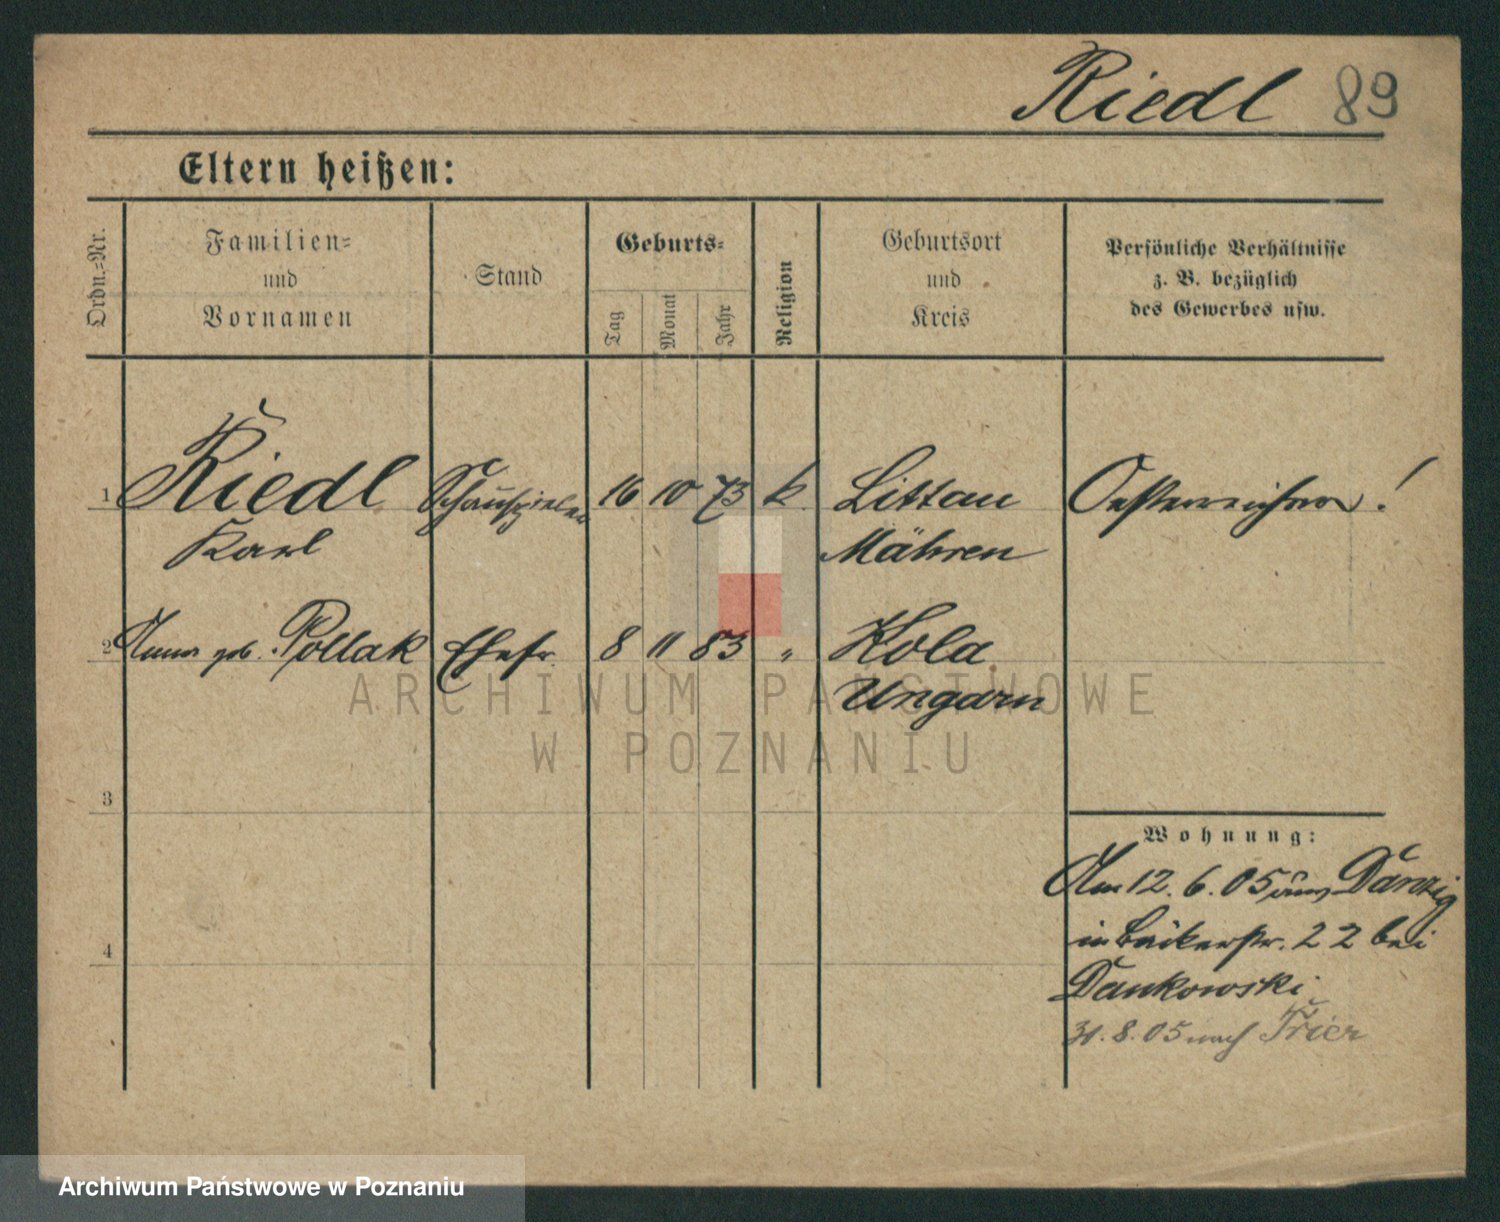 Riedl 89
Eltern heißen:
Ordn.=Nr.
Familien=
und
Vornamen
Stand
Geburts=
Tag
Monat
Jahr
Religion
Geburtsort
und
Kreis
Persönliche Verhältnisse
z. B. bezüglich
des Gewerbes usw.
1 Riedl Schauspieler 16 10 73 k. Littau Oesterreicher!
Karl Mähren
2 Anna geb. Pollak Ehefr. 8 11 83 " Kola
Ungarn
3
Wohnung:
Am 12. 6. 05 aus Danzig
in Bäckerstr. 22 bei
4
Dankowski
31. 8. 05 nach Trier
ARCHIWUM PAŃSTWOWE
W POZNANIU
Archiwum Państwowe w Poznaniu